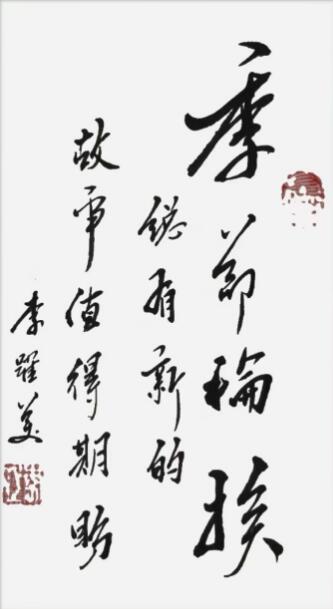 季節輪换
總有新的
故事值得期盼
李躍